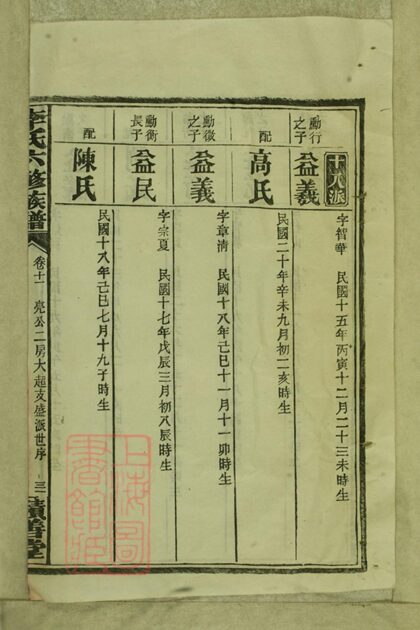 十八派
勳行之子
益羲
字智華 民國十五年丙寅十二月二十三未時生
配
高氏
民國二十年辛未九月初二亥時生
勳徵之子
益義
字章清 民國十八年己巳十一月十一卯時生
勳衡長子
益民
字宗夏 民國十七年戊辰三月初八辰時生
配
陳氏
民國十八年己巳七月十九子時生
李氏六修族譜
卷十一 亮公二房大超支盛派世序
三一
積善堂
上海圖書館藏